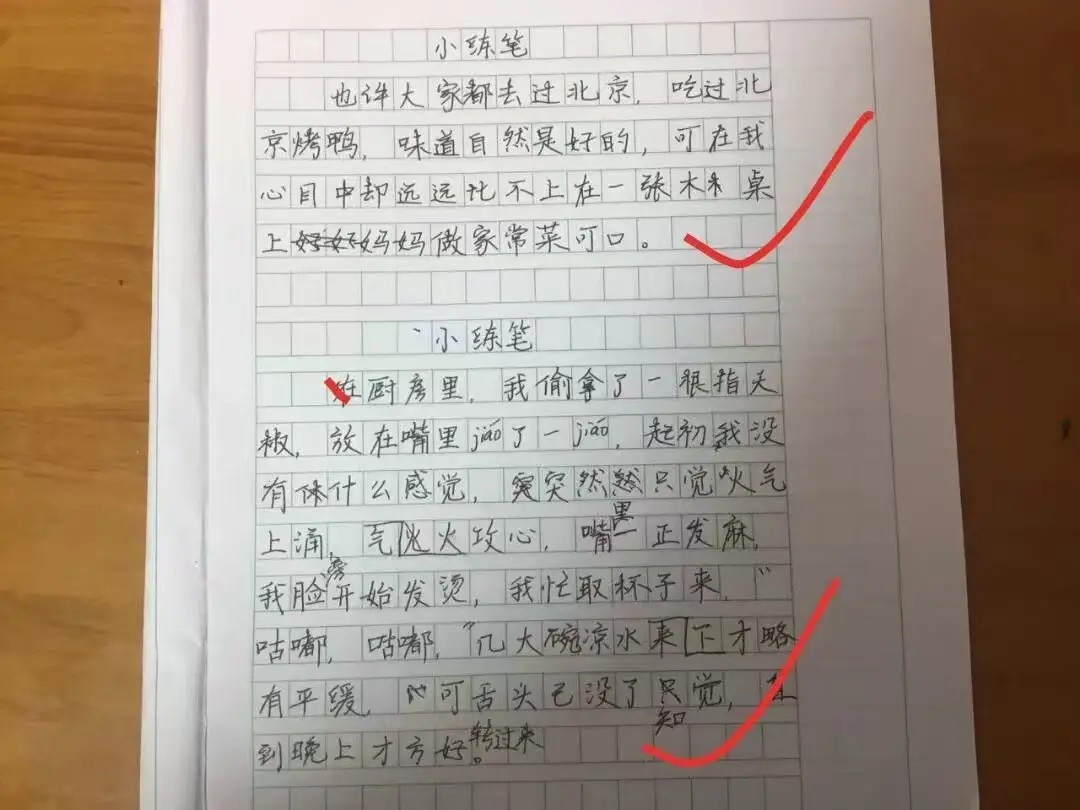 小练笔
也许大家都去过北京，吃过北
京烤鸭，味道自然是好的，可在我
心目中却远远比不上在一张木桌
上妈妈做家常菜可口。
小练笔
在厨房里，我偷拿了一根指天
椒，放在嘴里jiáo了一jiáo，起初我没
有什么感觉，突然只觉火气
上涌，气火攻心，嘴里一正发麻，
我脸旁开始发烫，我忙取杯子来，“
咕嘟，咕嘟，”几大碗凉水下才略
有平缓，可舌头已没了知觉，
到晚上才方好转过来。